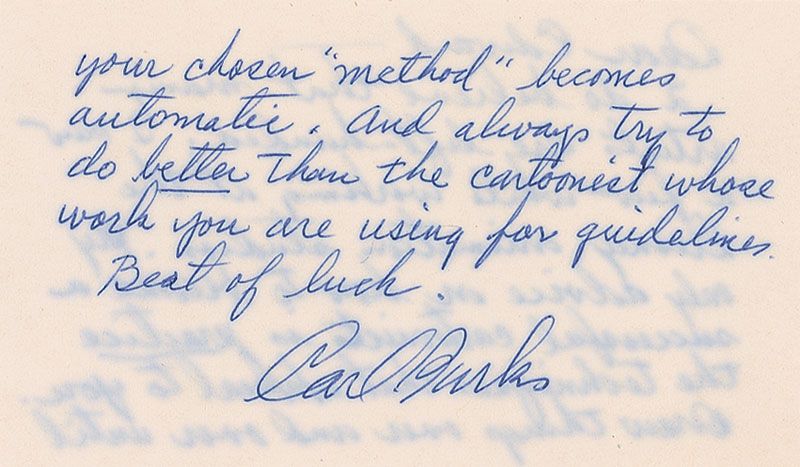 your chosen "method" becomes
automatic. And always try to
do better than the cartoonist whose
work you are using for guidelines.
Best of luck.
Carl Barks